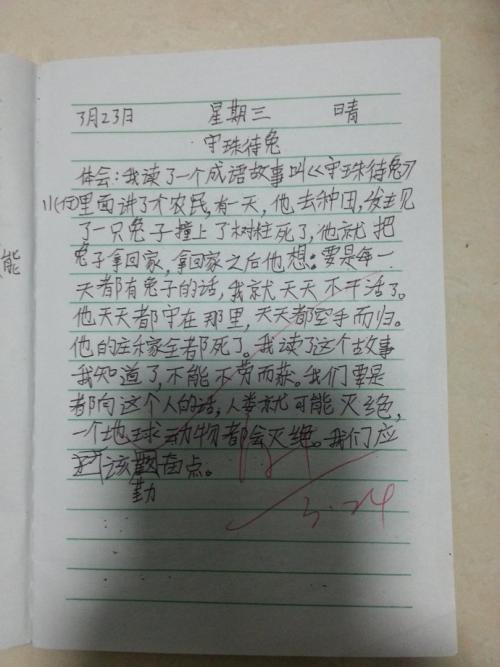 3月23日 星期三 晴
守珠待兔
体会:我读了一个成语故事叫《守珠待兔》
里面讲了个农民,有一天,他去种田,发现
了一只兔子撞上了树柱死了,他就把
兔子拿回家,拿回家之后他想:要是每一
天都有兔子的话,我就天天不干活了。
他天天都守在那里,天天都空手而归。
他的庄稼全都死了。我读了这个故事
我知道了,不能不劳而获。我们要是
都向这个人的话,人类就可能灭绝,
一个地球动物都会灭绝。我们应
该 奋点。
勤
3.24
能